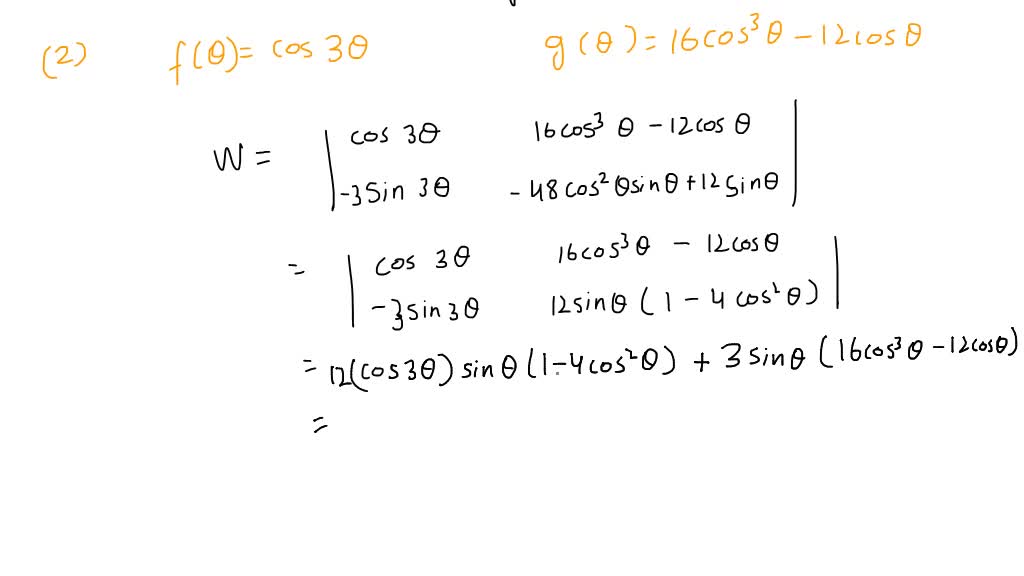 (2) f(θ) = cos 3θ g(θ) = 16cos³θ − 12cosθ
W = | cos 3θ 16cos³ θ − 12cos θ |
| −3Sin 3θ − 48cos² θsinθ + 12Sinθ |
= | cos 3θ 16cos³θ − 12cosθ |
| −3sin3θ 12sinθ (1 − 4cos²θ) |
= 12(cos3θ) sinθ (1−4cos²θ) + 3sinθ (16cos³θ − 12cosθ)
=